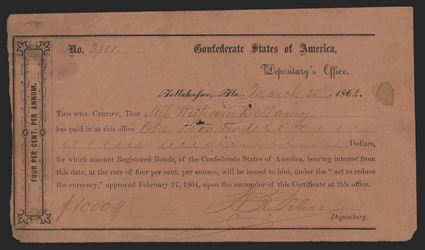 No. 3801
Confederate States of America,
Depositary's Office,
Tallahassee, Fla., March 26th, 1864.
THIS WILL CERTIFY, That Miss William Bellamy
has paid in at this office One thousand
Dollars,
for which amount Registered Bonds, of the Confederate States of America, bearing interest from
this date, at the rate of four per cent. per annum, will be issued to him, under the "act to reduce
the currency," approved February 17, 1864, upon the surrender of this Certificate at this office.
$1000
Depositary.
FOUR PER CENT. PER ANNUM.